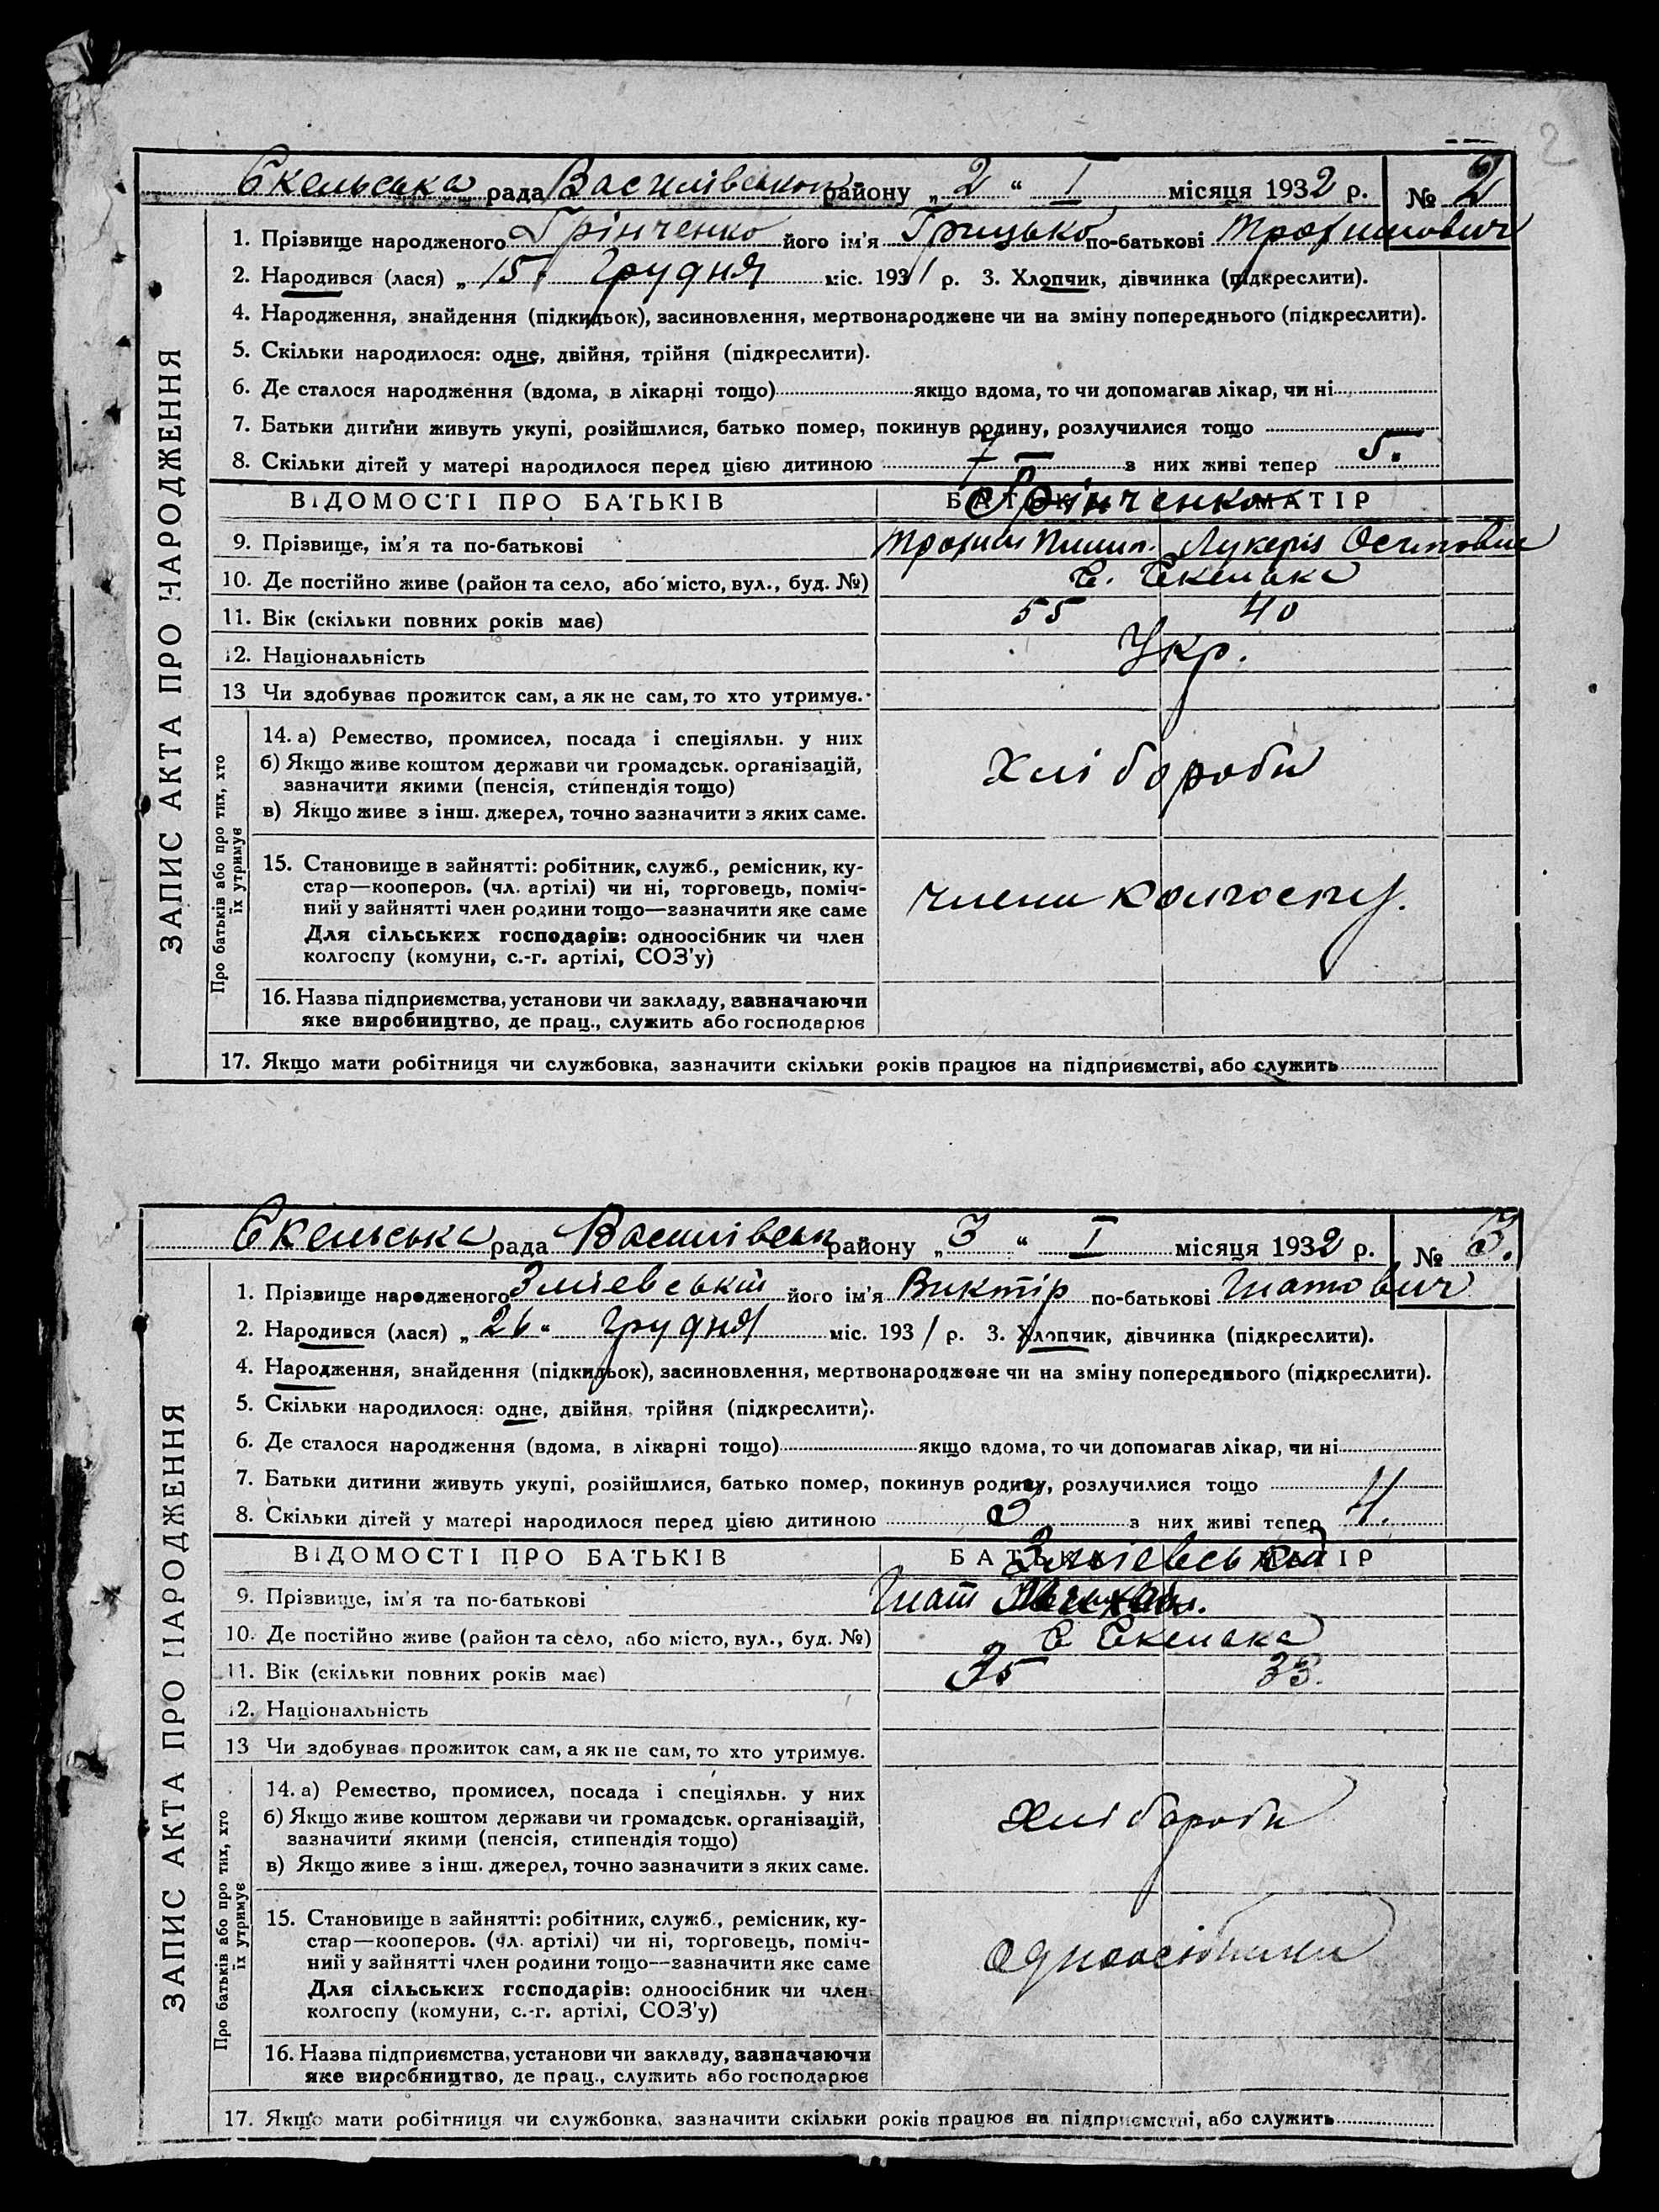 2
Скельська рада Василівського району „ 2 “ I місяця 1932 р. № 2
ЗАПИС АКТА ПРО НАРОДЖЕННЯ
1. Прізвище народженого Грінченко його ім'я Грицько по-батькові Трофимович
2. Народився (лася) „ 15 “ Грудня міс. 1931 р. 3. Хлопчик, дівчинка (підкреслити).
4. Народження, знайдення (підкидьок), засиновлення, мертвонароджене чи на зміну попереднього (підкреслити).
5. Скільки народилося: одне, двійня, трійня (підкреслити).
6. Де сталося народження (вдома, в лікарні тощо) якщо вдома, то чи допомагав лікар, чи ні
7. Батьки дитини живуть укупі, розійшлися, батько помер, покинув родину, розлучилися тощо
8. Скільки дітей у матері народилося перед цією дитиною 7 з них живі тепер 5.
ВІДОМОСТІ ПРО БАТЬКІВ БАТЬКО МАТІР
Грінченко
9. Прізвище, ім'я та по-батькові Трофим Пилип. Лукерія
10. Де постійно живе (район та село, або місто, вул., буд. №) С. Скелька
11. Вік (скільки повних років має) 55 40
12. Національність Укр.
13 Чи здобуває прожиток сам, а як не сам, то хто утримує.
Про батьків або про тих, хто їх утримує
14. а) Ремество, промисел, посада і спеціяльн. у них
б) Якщо живе коштом держави чи громадськ. організацій,
зазначити якими (пенсія, стипендія тощо)
в) Якщо живе з інш. джерел, точно зазначити з яких саме.
Хлібороби
15. Становище в зайнятті: робітник, служб., ремісник, ку-
стар—кооперов. (чл. артілі) чи ні, торговець, поміч-
ний у зайнятті член родини тощо—зазначити яке саме
Для сільських господарів: одноосібник чи член
колгоспу (комуни, с.-г. артілі, СОЗ'у)
члени колгоспу.
16. Назва підприємства, установи чи закладу, зазначаючи
яке виробництво, де прац., служить або господарює
17. Якщо мати робітниця чи службовка, зазначити скільки років працює на підприємстві, або служить
Скельська рада Василівськ району „ 3 “ I місяця 1932 р. № 3.
ЗАПИС АКТА ПРО НАРОДЖЕННЯ
1. Прізвище народженого Зміевській його ім'я Виктір по-батькові Гнатович
2. Народився (лася) „ 26 “ Грудня міс. 1931 р. 3. Хлопчик, дівчинка (підкреслити).
4. Народження, знайдення (підкидьок), засиновлення, мертвонароджене чи на зміну попереднього (підкреслити).
5. Скільки народилося: одне, двійня, трійня (підкреслити).
6. Де сталося народження (вдома, в лікарні тощо) якщо вдома, то чи допомагав лікар, чи ні
7. Батьки дитини живуть укупі, розійшлися, батько помер, покинув родину, розлучилися тощо
8. Скільки дітей у матері народилося перед цією дитиною з них живі тепер 4.
ВІДОМОСТІ ПРО БАТЬКІВ БАТЬКО МАТІР
9. Прізвище, ім'я та по-батькові Гнат
10. Де постійно живе (район та село, або місто, вул., буд. №) С Скелька
11. Вік (скільки повних років має) 35 33.
12. Національність
13 Чи здобуває прожиток сам, а як не сам, то хто утримує.
Про батьків або про тих, хто їх утримує
14. а) Ремество, промисел, посада і спеціяльн. у них
б) Якщо живе коштом держави чи громадськ. організацій,
зазначити якими (пенсія, стипендія тощо)
в) Якщо живе з інш. джерел, точно зазначити з яких саме.
Хлібороби
15. Становище в зайнятті: робітник, служб., ремісник, ку-
стар—кооперов. (чл. артілі) чи ні, торговець, поміч-
ний у зайнятті член родини тощо—зазначити яке саме
Для сільських господарів: одноосібник чи член
колгоспу (комуни, с.-г. артілі, СОЗ'у)
Одноосібники
16. Назва підприємства, установи чи закладу, зазначаючи
яке виробництво, де прац., служить або господарює
17. Якщо мати робітниця чи службовка, зазначити скільки років працює на підприємстві, або служить